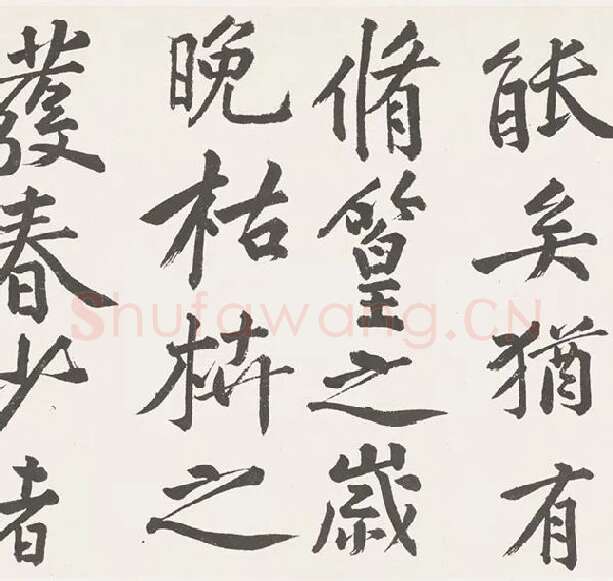 能矣猶有
脩篁之歲
晚枯枿之
發春少者
Shufawang.CN